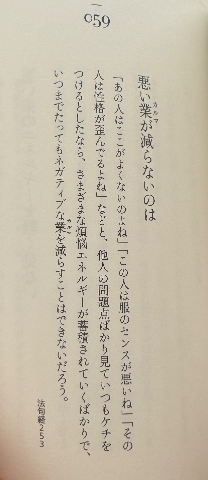 059
悪い業が減らないのは
カルマ
「あの人はここがよくないのよね」「この人は服のセンスが悪いね」「その
人は性格が歪んでるよね」などと、他人の問題点ばかり見ていつもケチを
つけるとしたなら、さまざまな煩悩エネルギーが蓄積されていくばかりで、
いつまでたってもネガティブな業を減らすことはできないだろう。
法句経253